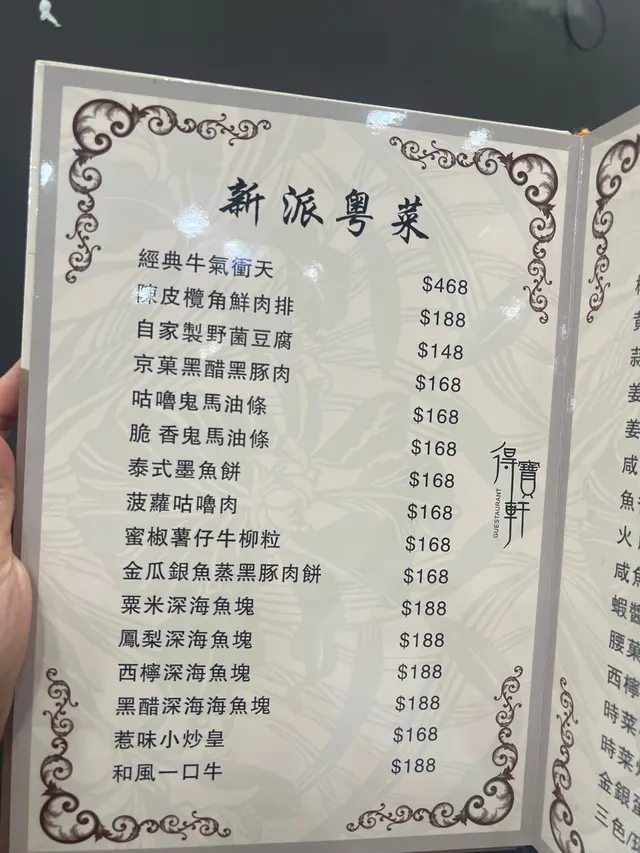 新派粵菜
經典牛氣衝天 $468
陳皮欖角鮮肉排 $188
自家製野菌豆腐 $148
京菓黑醋黑豚肉 $168
咕嚕鬼馬油條 $168
脆香鬼馬油條 $168
泰式墨魚餅 $168
菠蘿咕嚕肉 $168
蜜椒薯仔牛柳粒 $168
金瓜銀魚蒸黑豚肉餅 $168
粟米深海魚塊 $188
鳳梨深海魚塊 $188
西檸深海魚塊 $188
黑醋深海海魚塊 $188
惹味小炒皇 $168
和風一口牛 $188
得寶軒
GUESTAURANT
蒜
姜
姜
咸
魚
火
咸魚
蝦醬
腰菓
西檸
時菜
時菜
金銀
三色